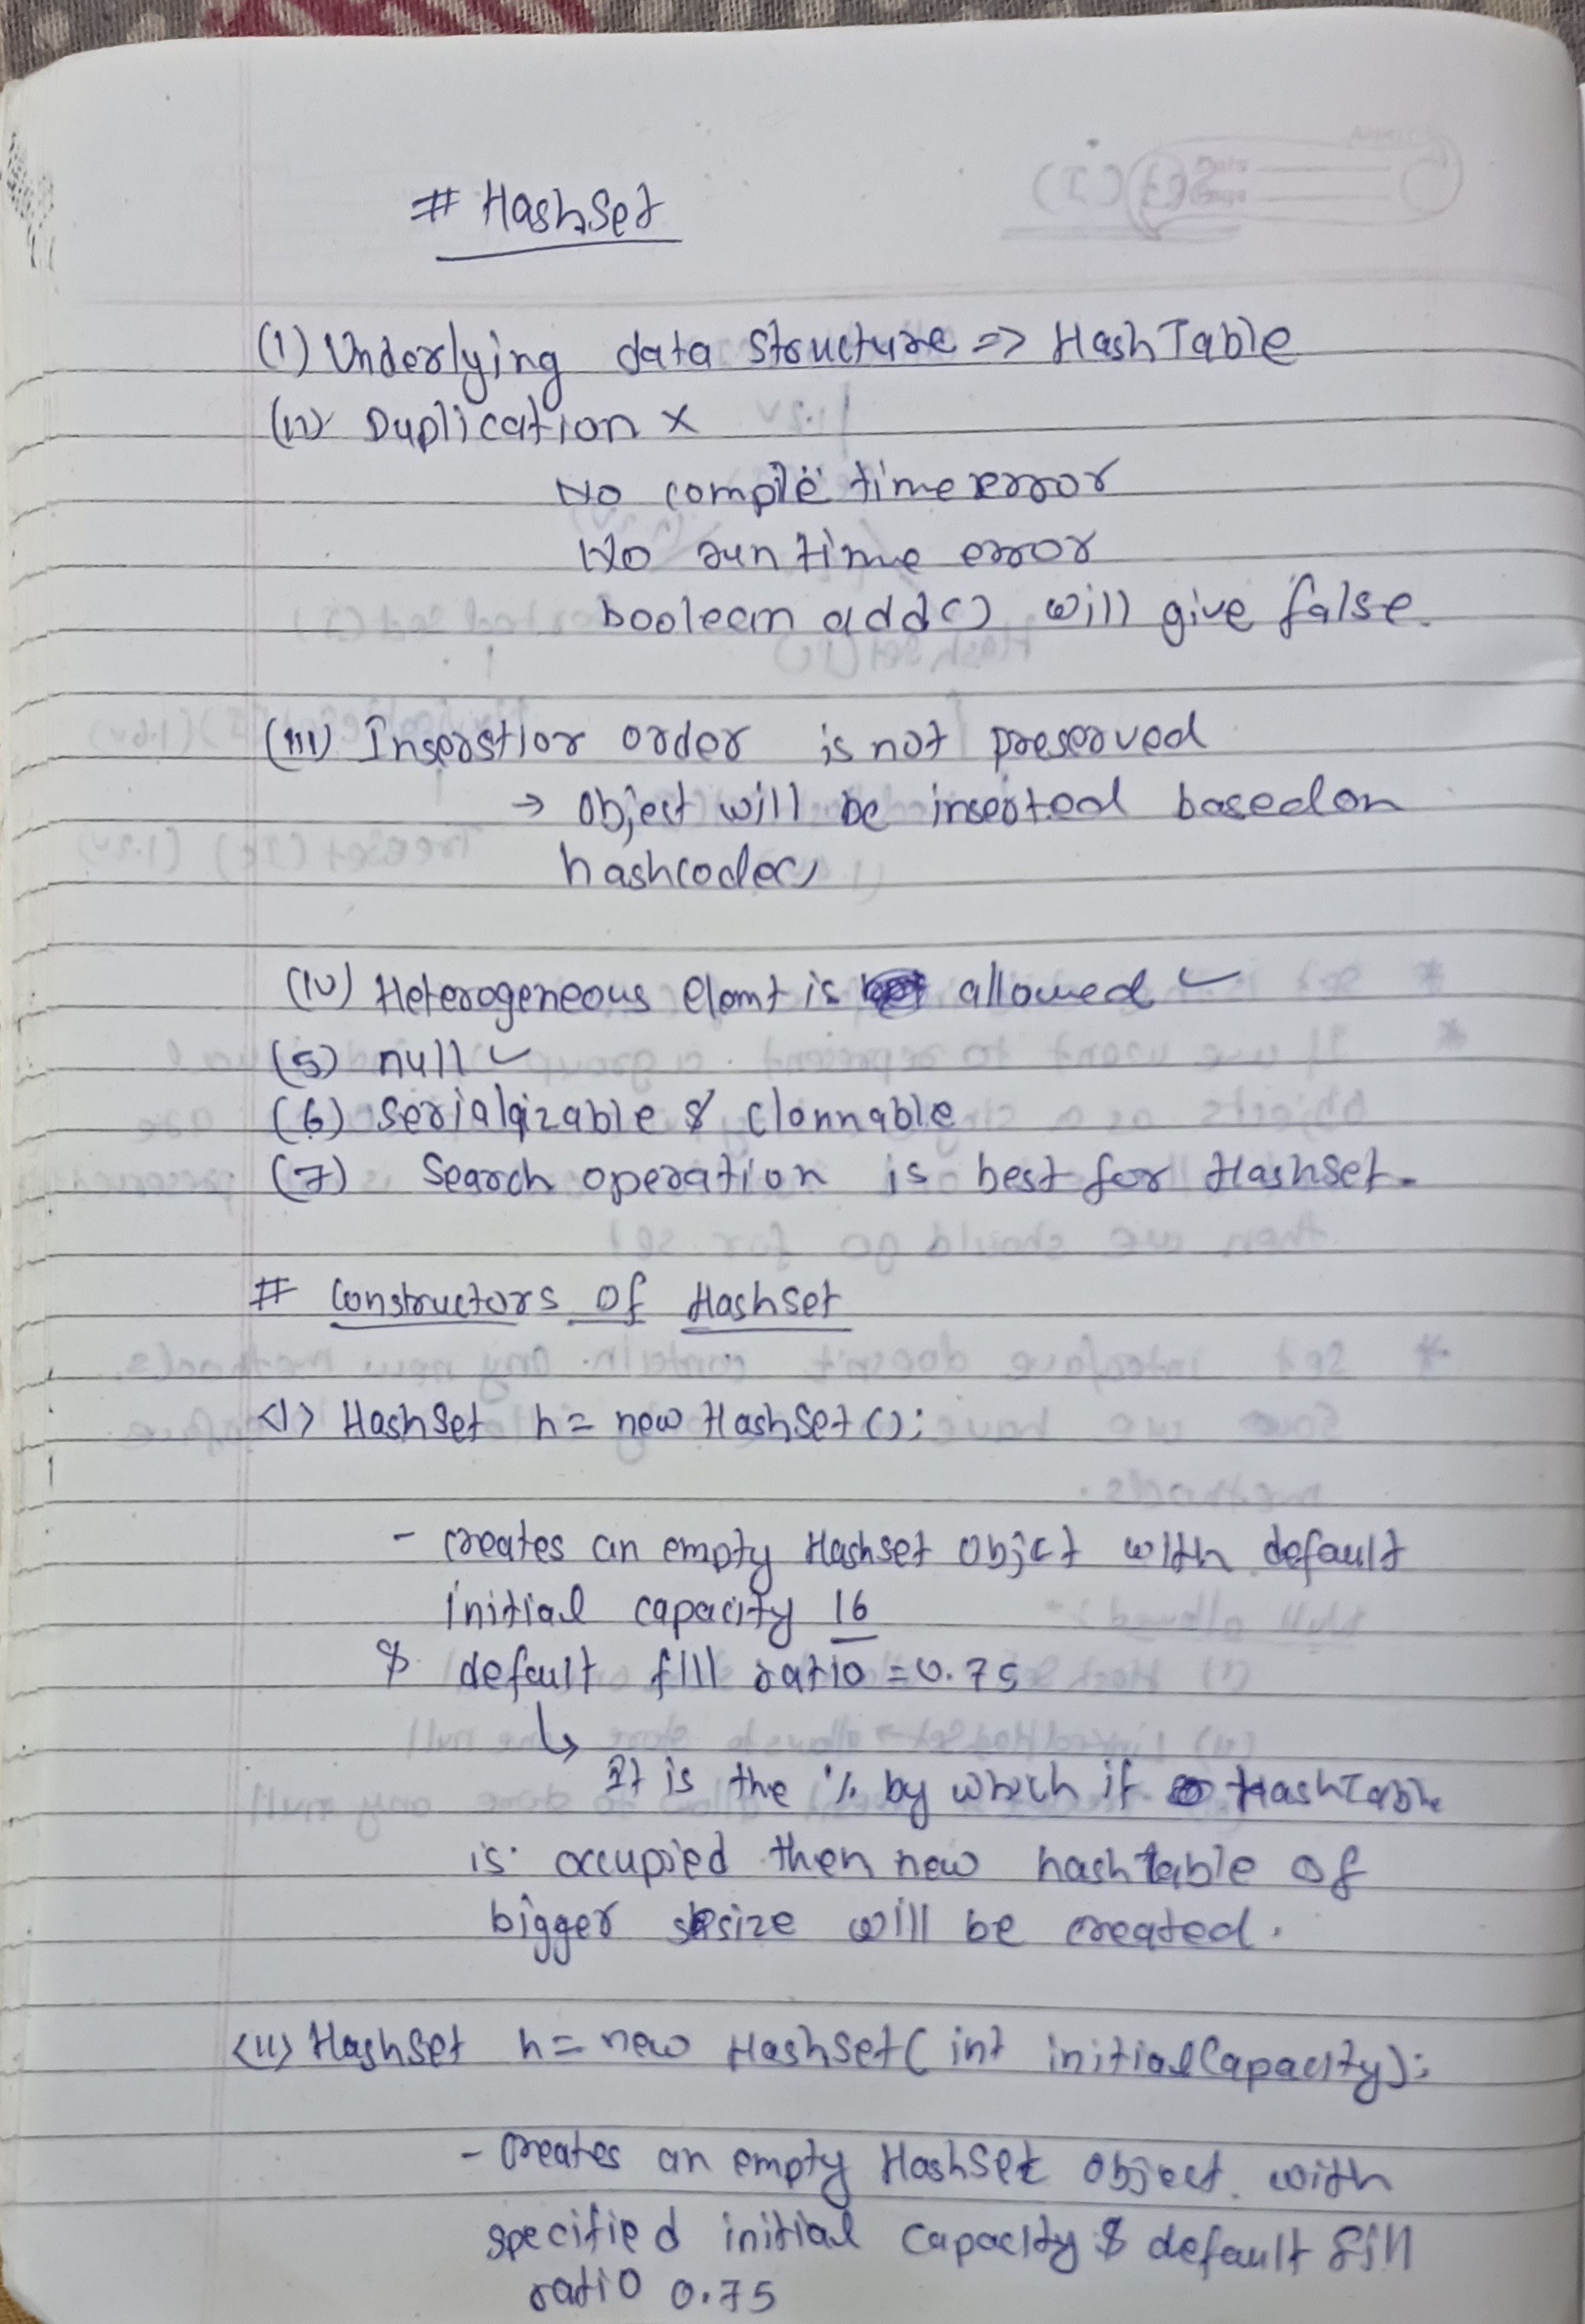 # HashSet
(1) Underlying data structure => HashTable
(11) Duplication x
No compile time error
No run time error
boolean add() will give false.
(111) Inserstior order is not preserved
→ Object will be inserted based on
hashcode()
(IV) Heterogeneous elemt is allowed ✓
(5) null ✓
(6) Serialaizable & clonnable
(7) Search operation is best for HashSet.
# Constructors of HashSet
<1> HashSet h = new HashSet();
- creates an empty HashSet Objct with default
initial capacity 16
& default fill ratio = 0.75
↳
It is the % by which if HashTable
is occupied then new hashtable of
bigger size will be created.
<11> HashSet h = new HashSet( int initialCapacity);
- Creates an empty HashSet Object with
specified initial Capacity & default fill
ratio 0.75